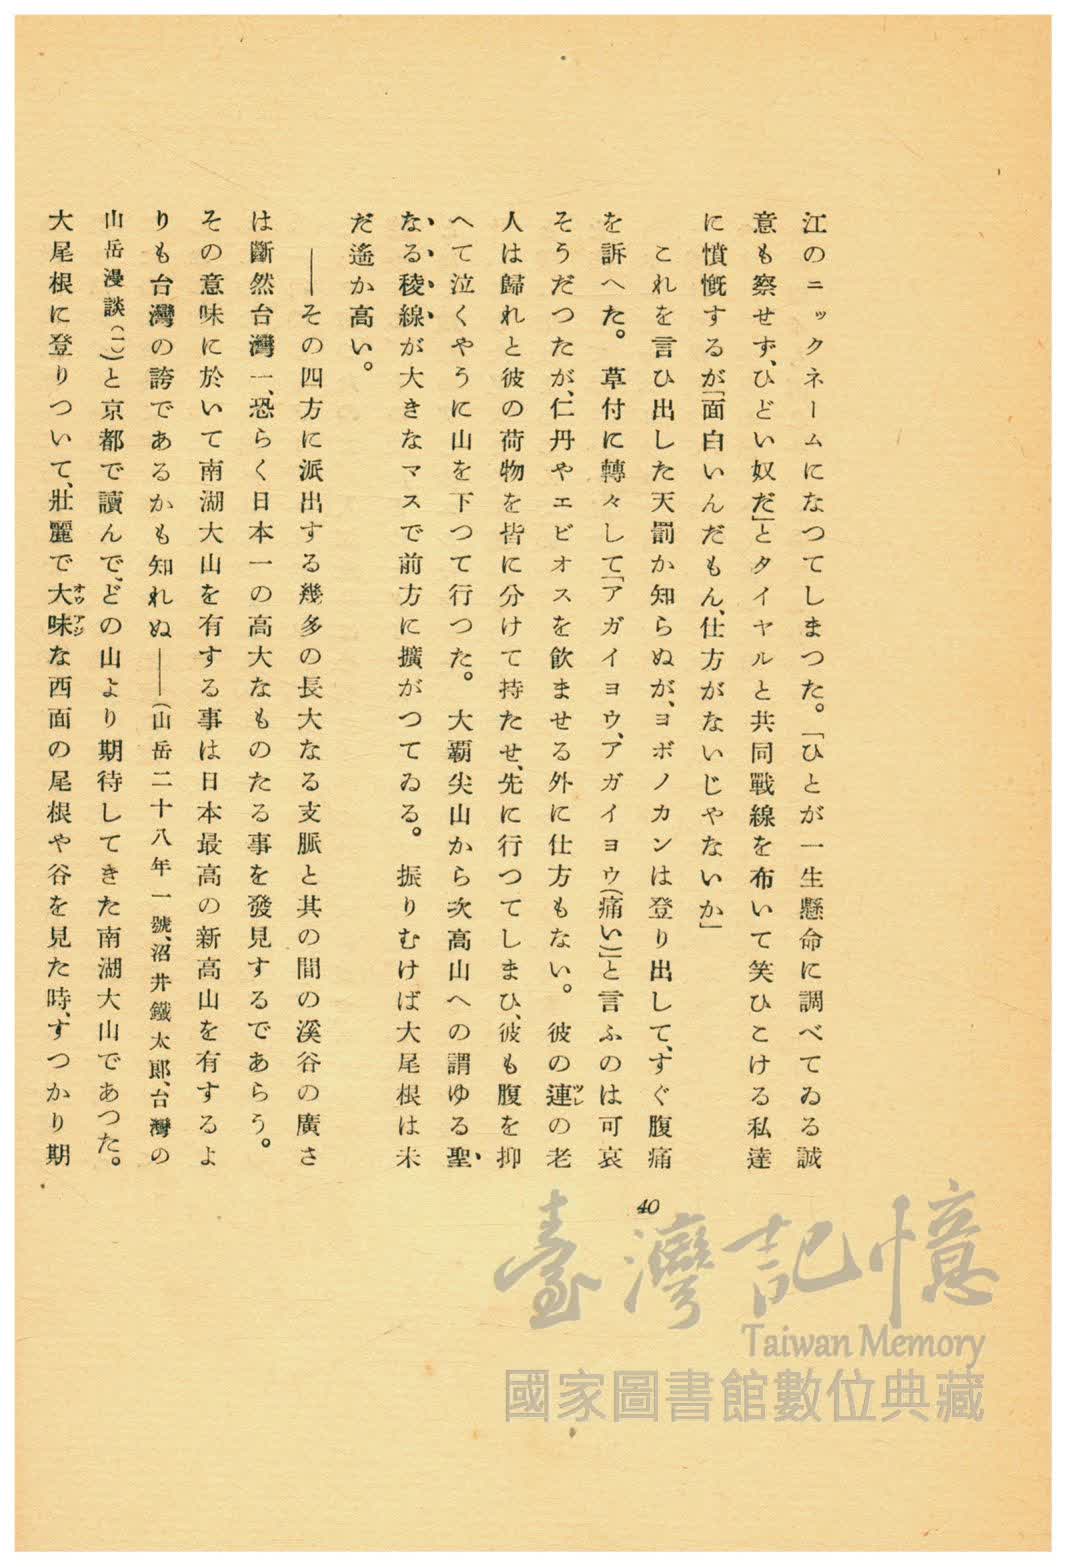 江のニックネームになつてしまつた。「ひとが一生懸命に調べてゐる誠
意も察せず、ひどい奴だ」とタイヤルと共同戰線を布いて笑ひこける私達
に憤慨するが「面白いんだもん、仕方がないじゃないか」
これを言ひ出した天罰か知らぬが、ヨボノカンは登り出して、すぐ腹痛
を訴へた。草付に轉々して「アガイヨウ、アガイヨウ(痛い)」と言ふのは可哀
そうだつたが、仁丹やエビオスを飮ませる外に仕方もない。彼の連の老
人は歸れと彼の荷物を皆に分けて持たせ、先に行つてしまひ、彼も腹を抑
へて泣くやうに山を下つて行つた。大覇尖山から次高山への謂ゆる聖
なる稜線が大きなマスで前方に擴がつてゐる。振りむけば大尾根は未
だ遙か高い。
――その四方に派出する幾多の長大なる支脈と其の間の溪谷の廣さ
は斷然台灣一、恐らく日本一の高大なものたる事を發見するであらう。
その意味に於いて南湖大山を有する事は日本最高の新高山を有するよ
りも台灣の誇であるかも知れぬ――(山岳二十八年一號、沼井鐵太郞、台灣の
山岳漫談(一))と京都で讀んで、どの山より期待してきた南湖大山であつた。
大尾根に登りついて、壯麗で大味な西面の尾根や谷を見た時、すつかり期
40
臺灣記憶
Taiwan Memory
國家圖書館數位典藏